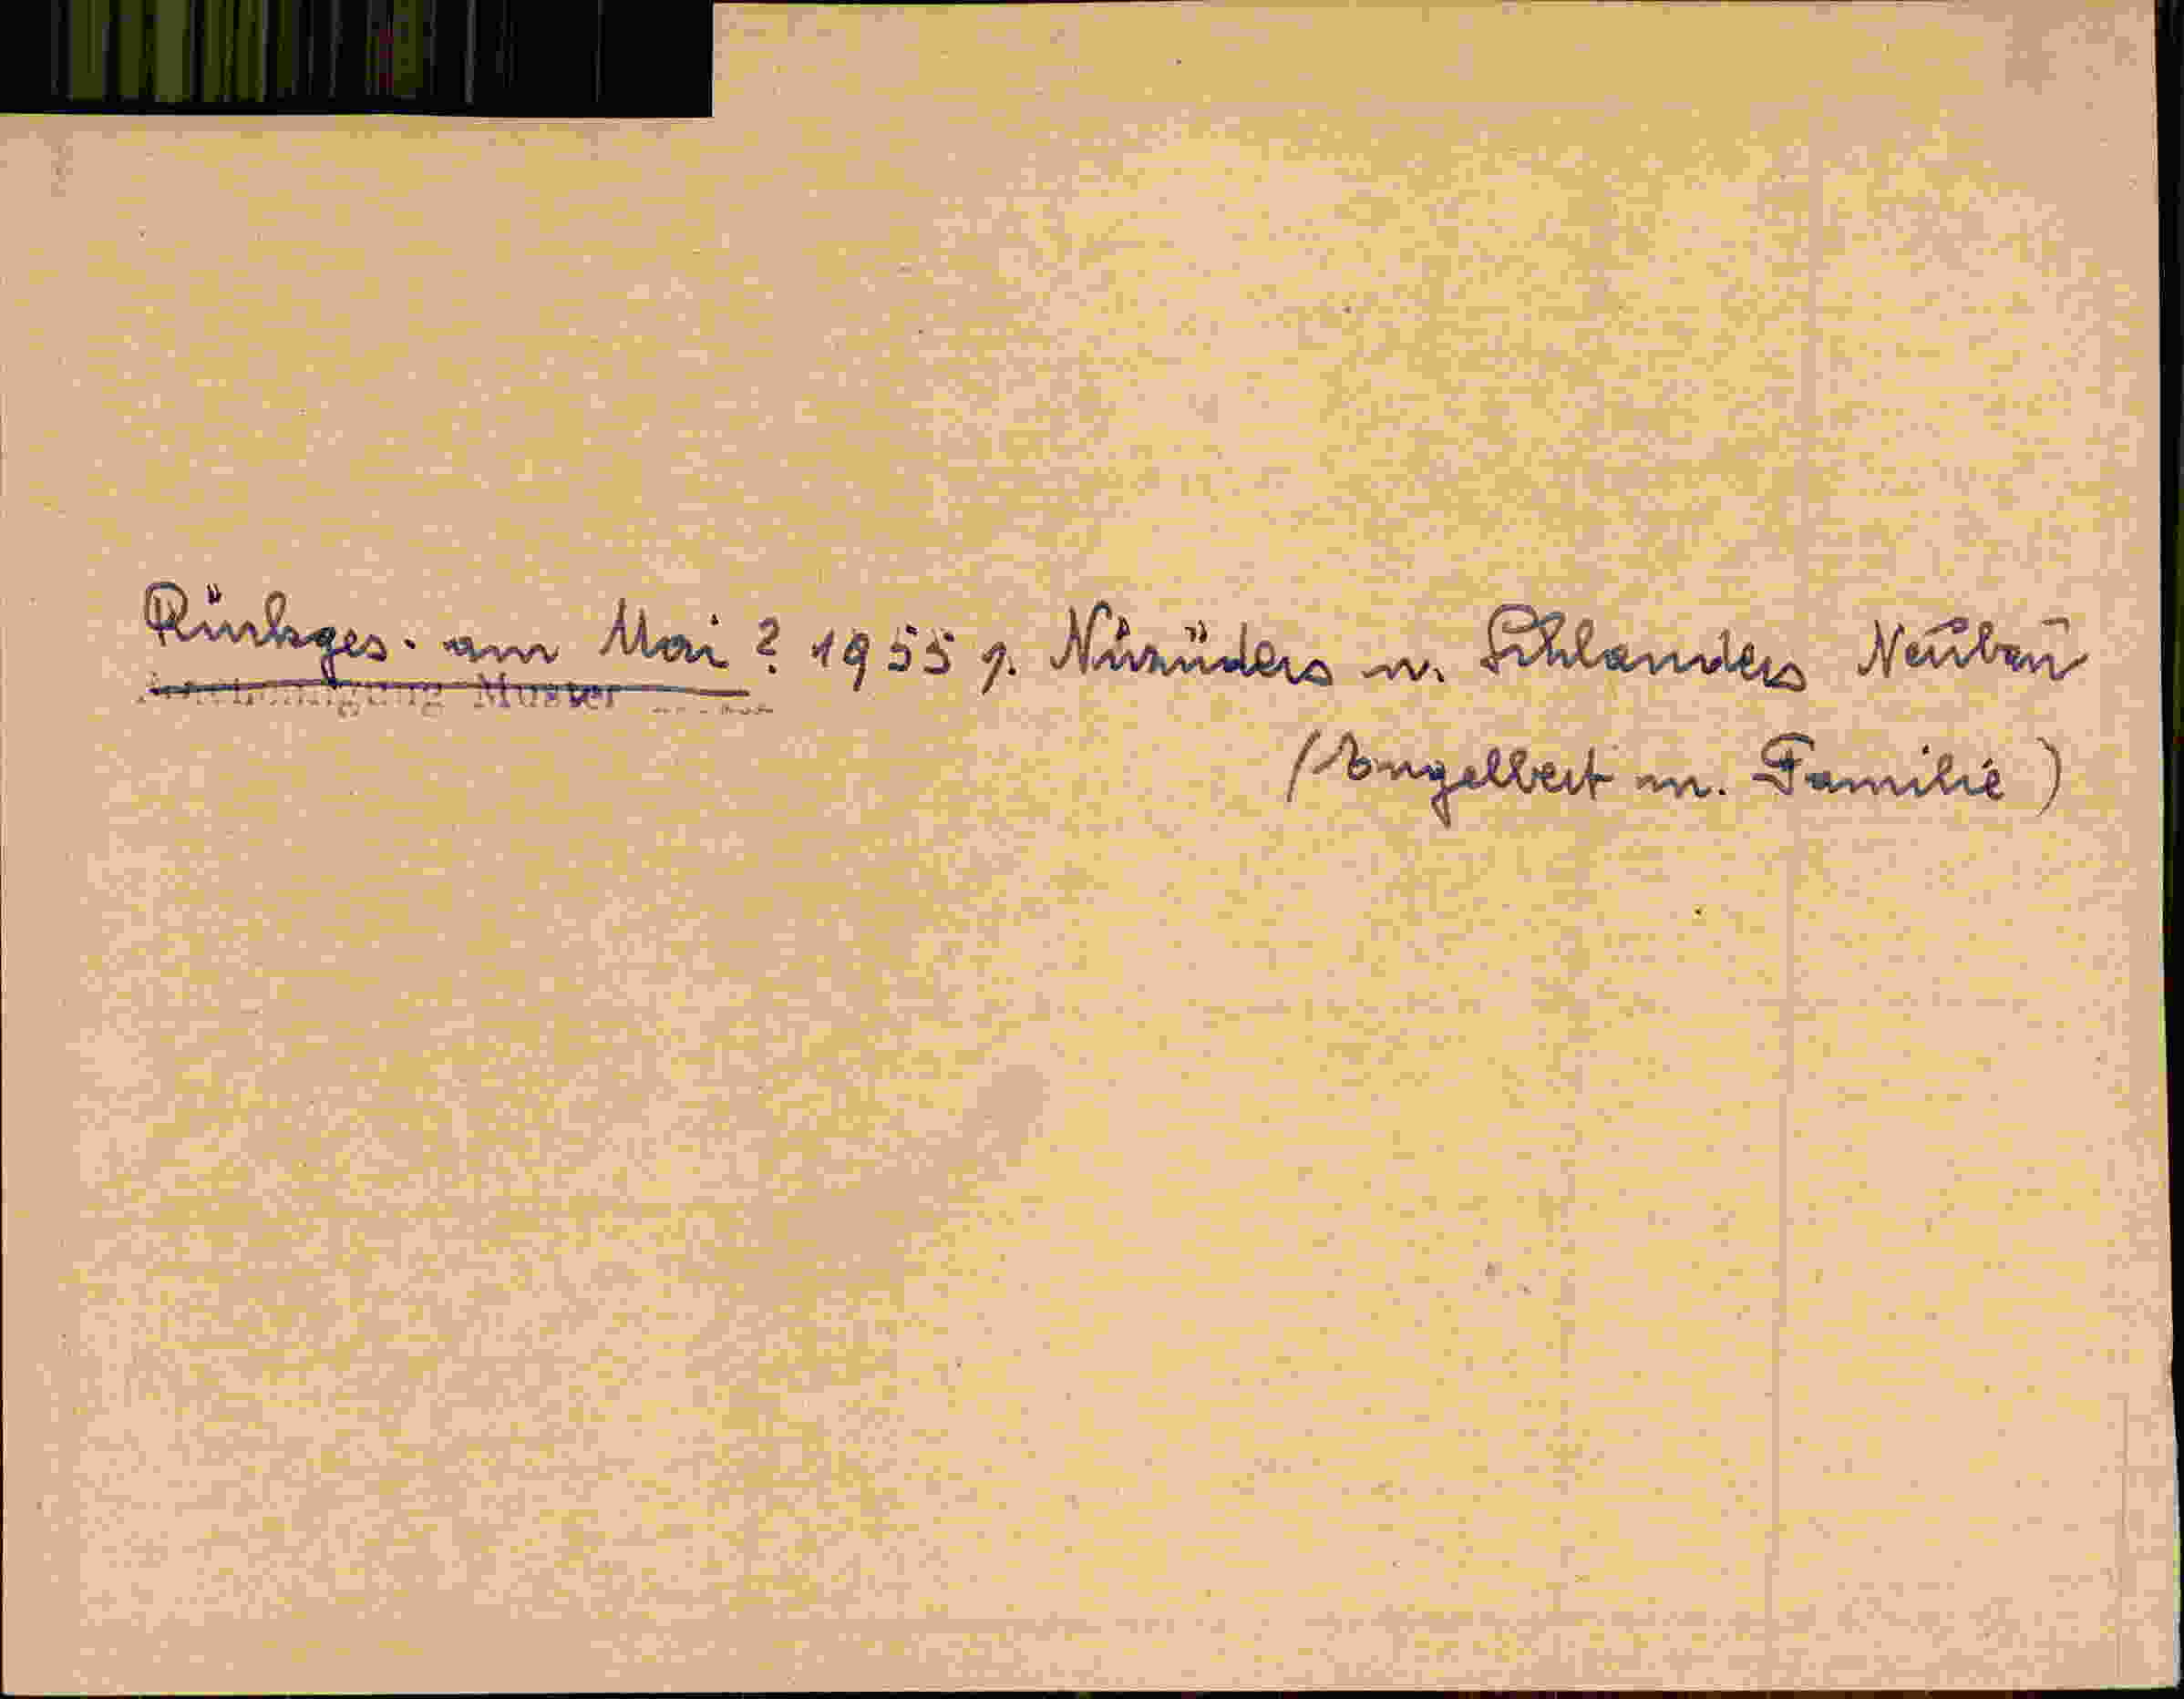 Rückges. am Mai ? 1955 n. Schlanders Neubau
Muster
(Engelbert m. Familie)